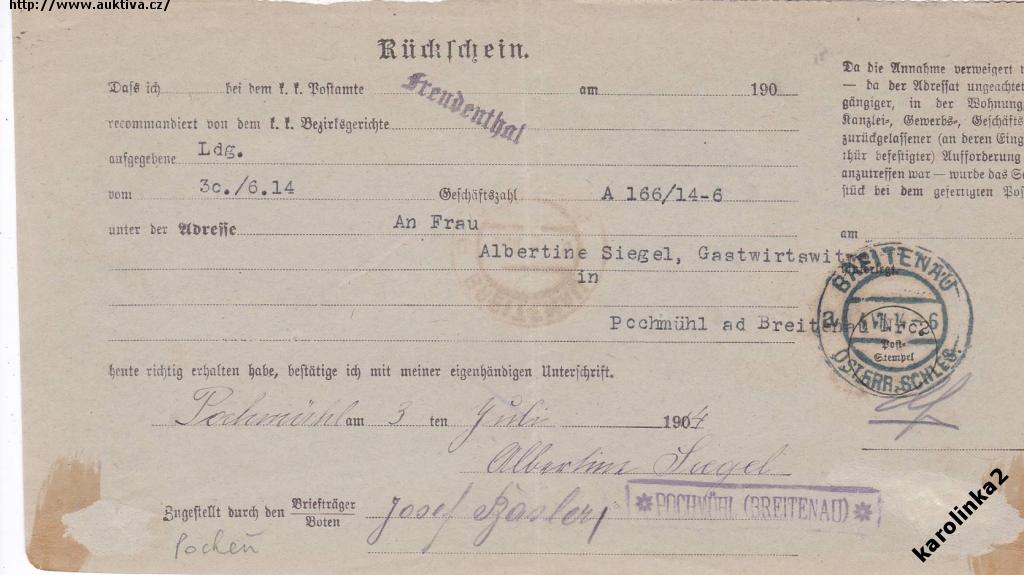 http://www.auktiva.cz/
Rückschein.
Daß ich bei dem k. k. Postamte Freudenthal am 190
recommandiert von dem k. k. Bezirksgerichte
aufgegebene Ldg.
vom 3c./6.14 Geschäftszahl A 166/14-6
unter der Adresse An Frau
Albertine Siegel, Gastwirtswitwe
in
Pochmühl ad Breitenau Nrc2
heute richtig erhalten habe, bestätige ich mit meiner eigenhändigen Unterschrift.
Pochmühl am 3 ten Juli 1904
Albertine Siegel
Zugestellt durch den Briefträger
Boten
Josef Basler
POCHMÜHL (BREITENAU)
Pochen
Da die Annahme verweigert
— da der Adressat ungeachtet
gängiger, in der Wohnung
Kanzlei-, Gewerbs-, Geschäfts
zurückgelassener (an deren Eing
thür befestigter) Aufforderung
anzutreffen war — wurde das Se
stück bei dem gefertigten Pos
am
hinterlegt.
BREITENAU
ÖSTERR. SCHLES.
Post-
Stempel
karolinka2